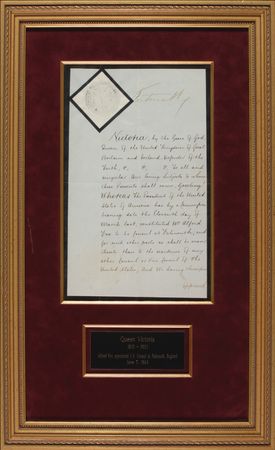 Victoria, by the Grace of God,
Queen of the United Kingdom of Great
Britain and Ireland, Defender of the
Faith, &. &. &. To all and
singular Our loving Subjects to whom
these Presents shall come, Greeting!
Whereas The President of the United
States of America has by a Commission
bearing date the Eleventh day of
March last, constituted Mr Alfred
Fox to be Consul at Falmouth, and
for such other parts as shall be more
than to the residence of any
other Consul or Vice Consul of the
United States, And We having
approved
Queen Victoria
1819 - 1901
Alfred Fox appointed U.S. Consul to Falmouth, England
June 7, 1863